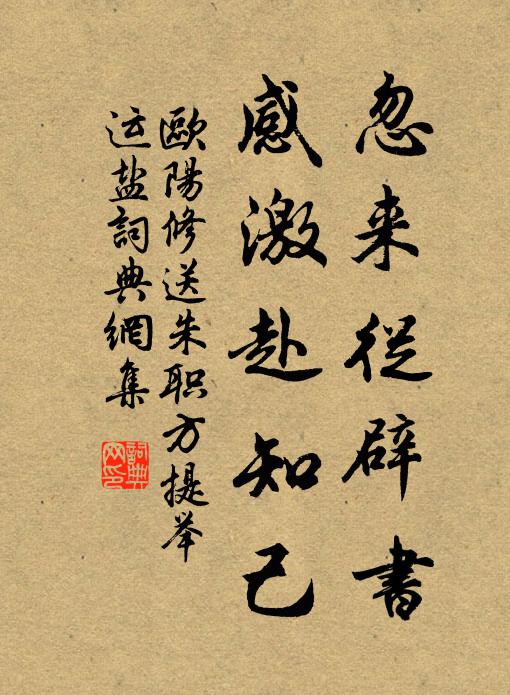 忽来從辟書
感激赴知己
歐陽修送朱职方提举
运盐詞典網集
詞典网印